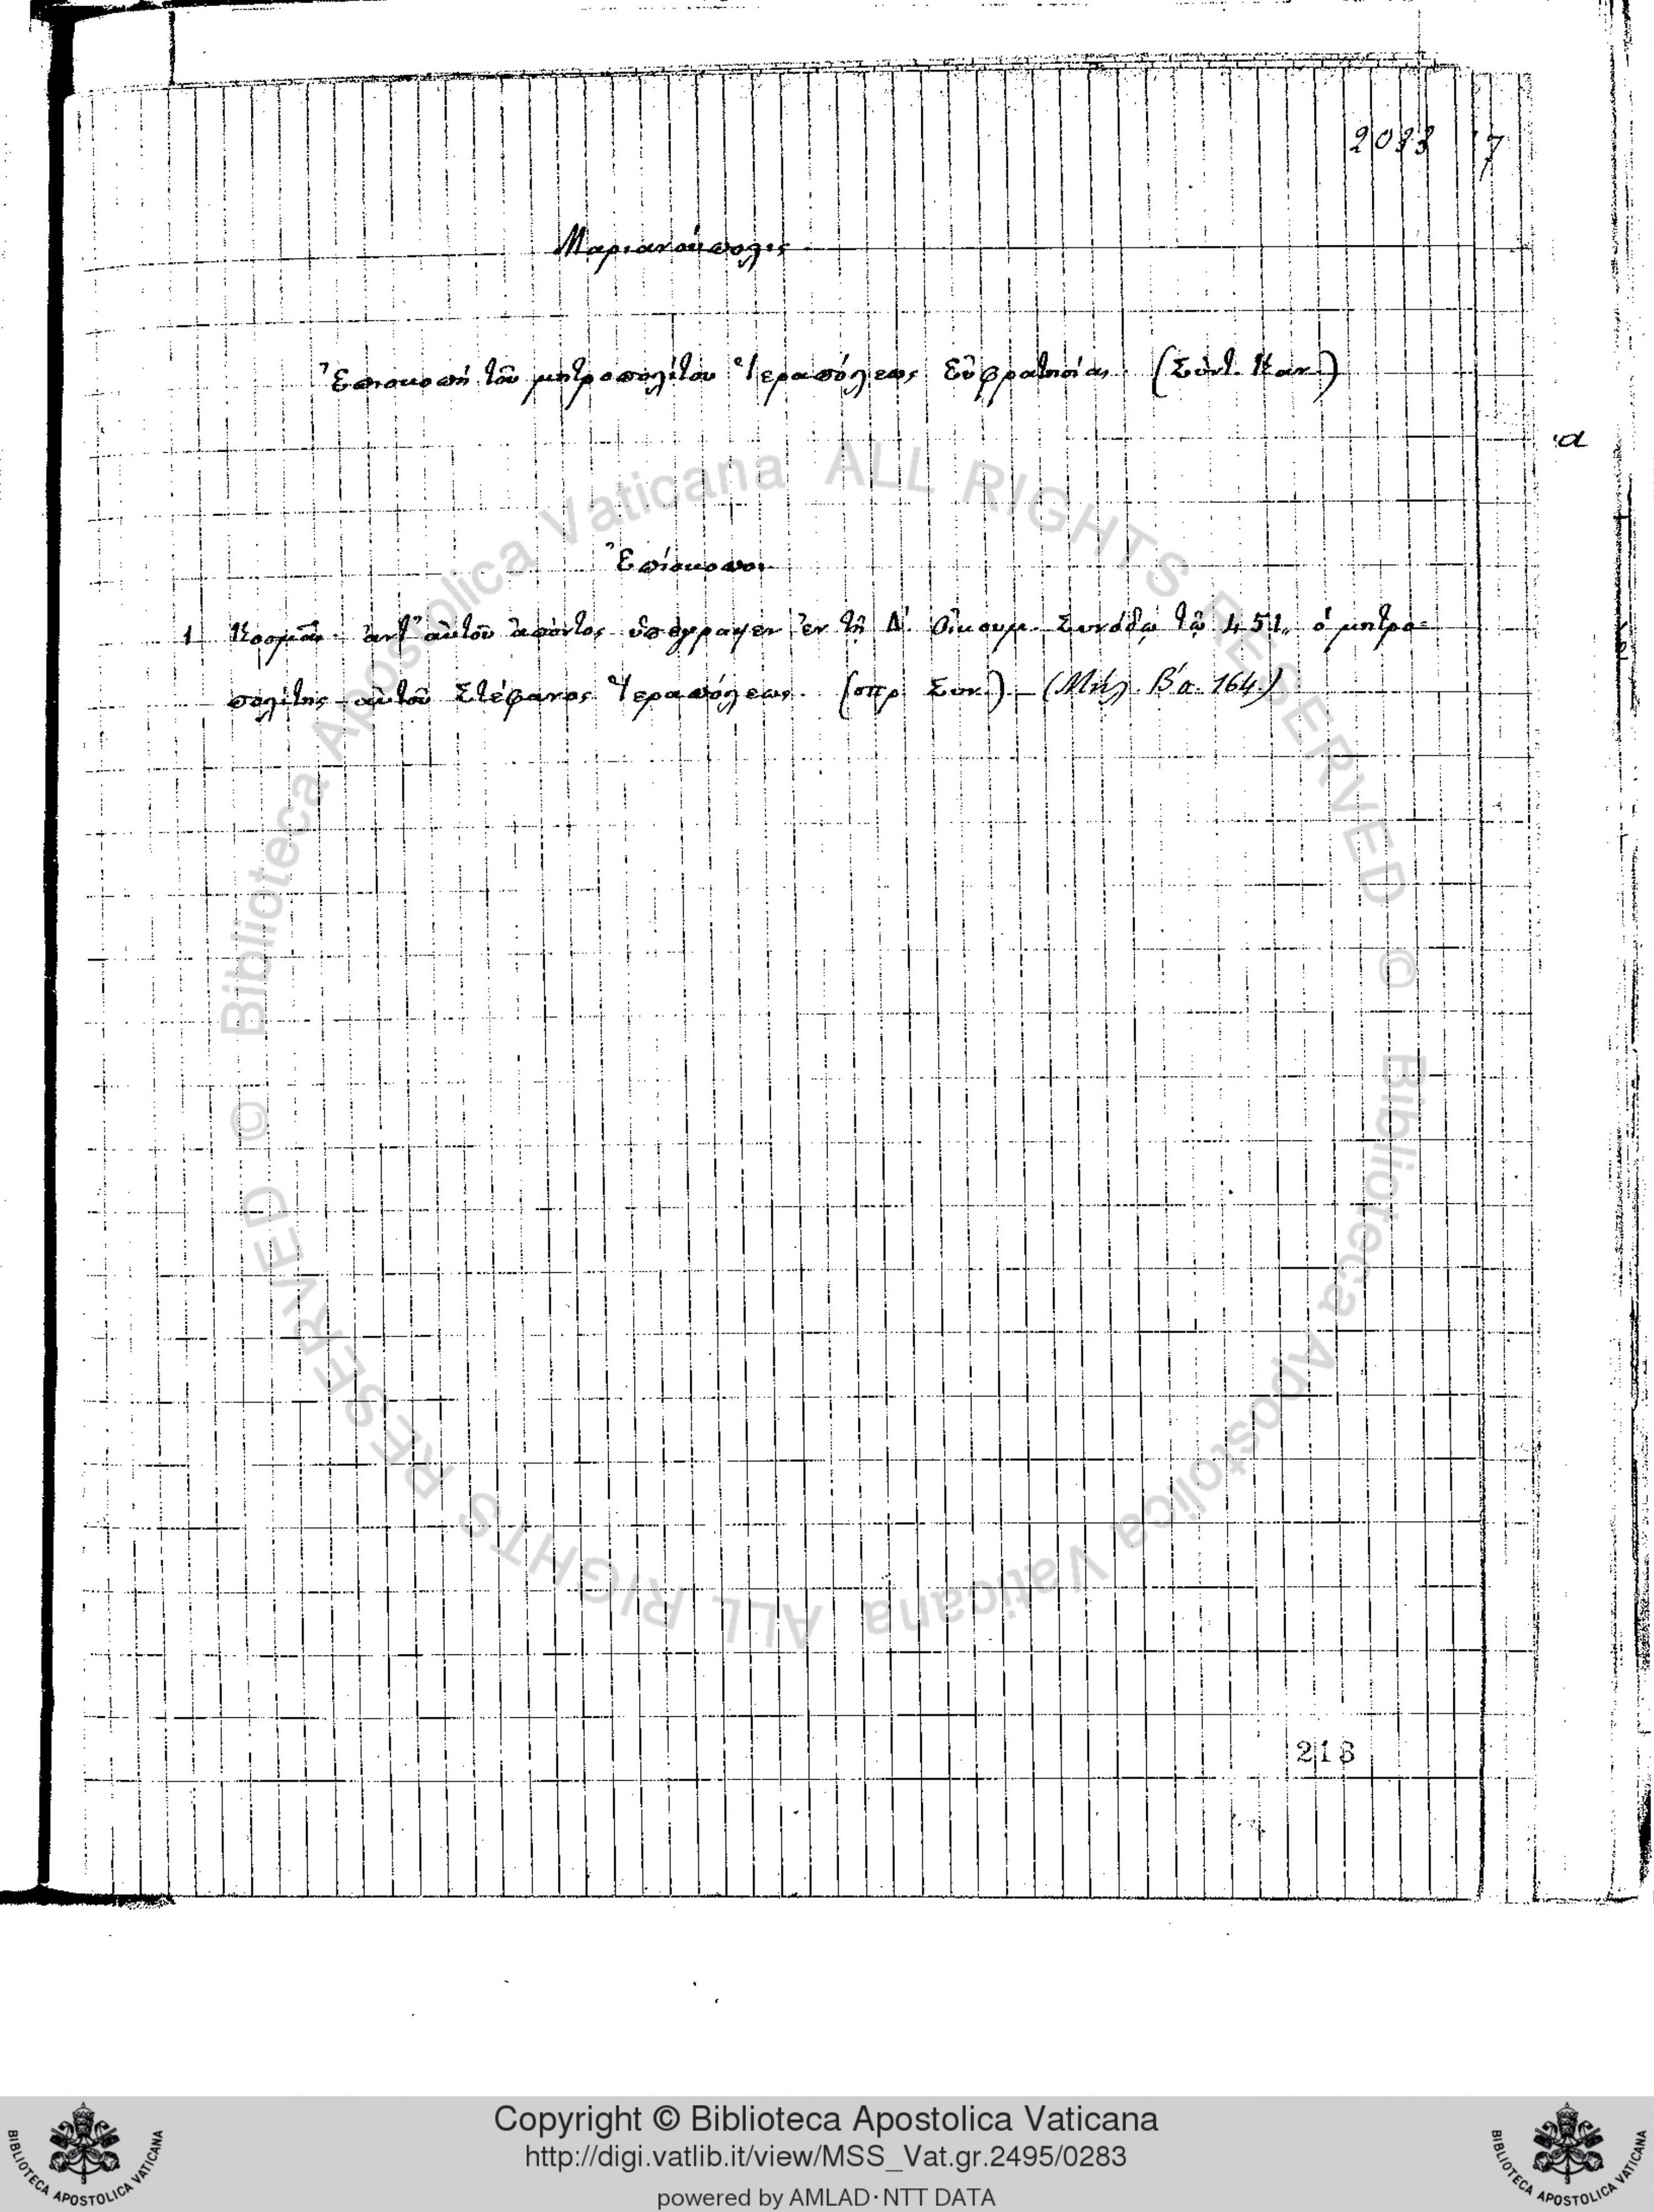 7
Μαριανούπολις
Ἐπισκοπή τοῦ μητροπολίτου Ἱεραπόλεως Εὐφρατησίας. (Σύντ. Καν.)
α
Ἐπίσκοποι
1 Κοσμᾶς. ἀντ' αὐτοῦ ἀπόντος ὑπέγραψεν ἐν τῇ Δ'. Οἰκουμ. Συνόδῳ τῷ 451, ὁ μητρο=
πολίτης αὐτοῦ Στέφανος Ἱεραπόλεως. (πρ. Συν.) – (Μήλ. Βα. 164)
© Biblioteca Apostolica Vaticana ALL RIGHTS RESERVED © Biblioteca Apostolica Vaticana ALL RIGHTS RESERVED
Copyright © Biblioteca Apostolica Vaticana
http://digi.vatlib.it/view/MSS_Vat.gr.2495/0283
powered by AMLAD·NTT DATA
BIBLIOTECA APOSTOLICA VATICANA
BIBLIOTECA APOSTOLICA VATICANA